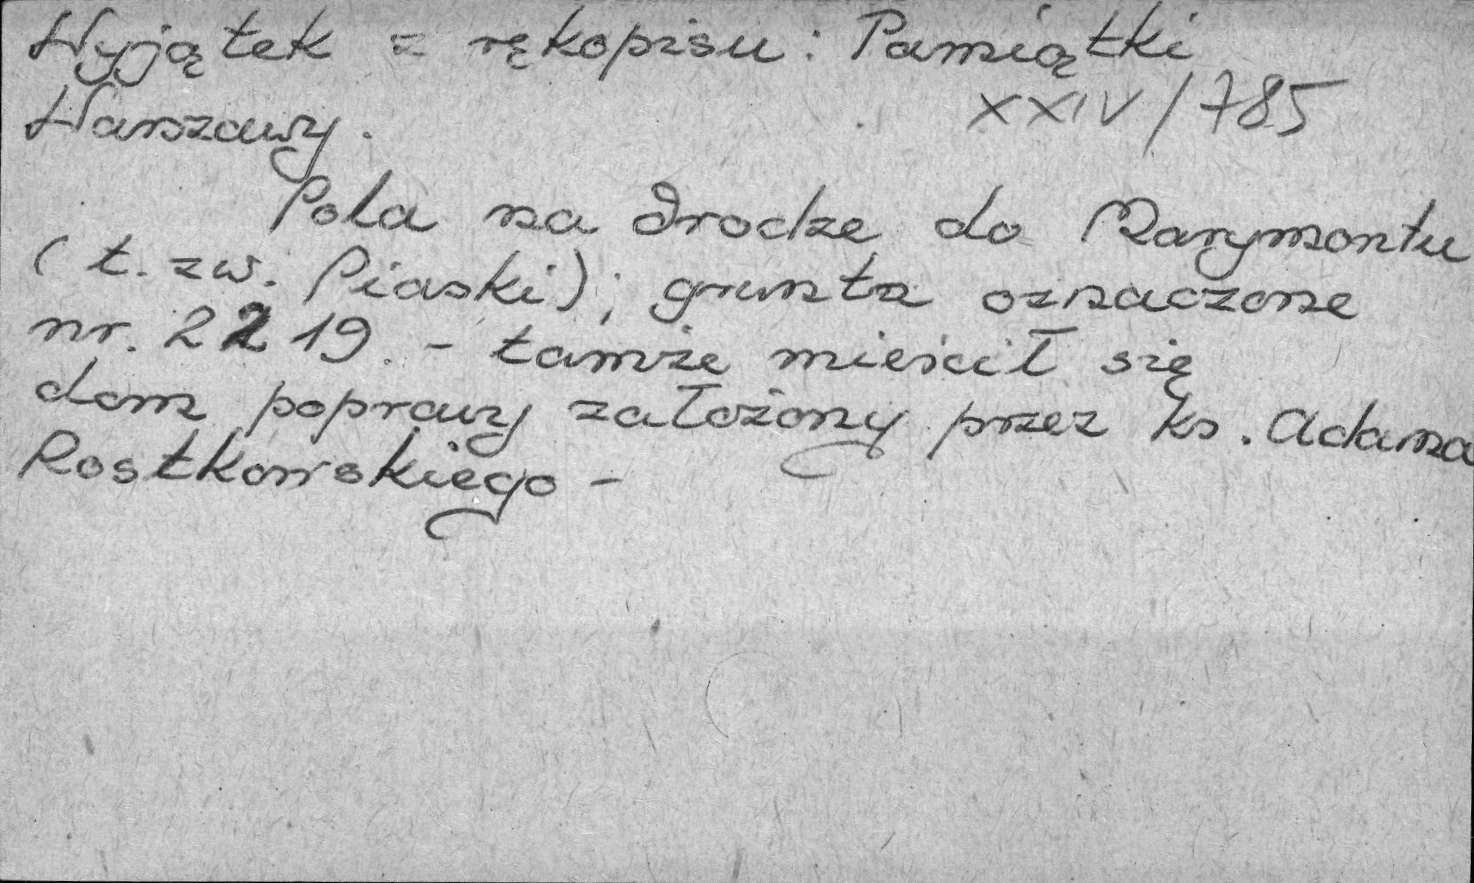 Wyjątek z rękopisu: Pamiątki
Warszawy.
XXIV/785
Pola na drodze do Marymontu
(t. zw. Piaski); grunta oznaczone
nr. 2219. - tamże mieścił się
dom poprawy założony przez ks. Adama
Rostkowskiego -